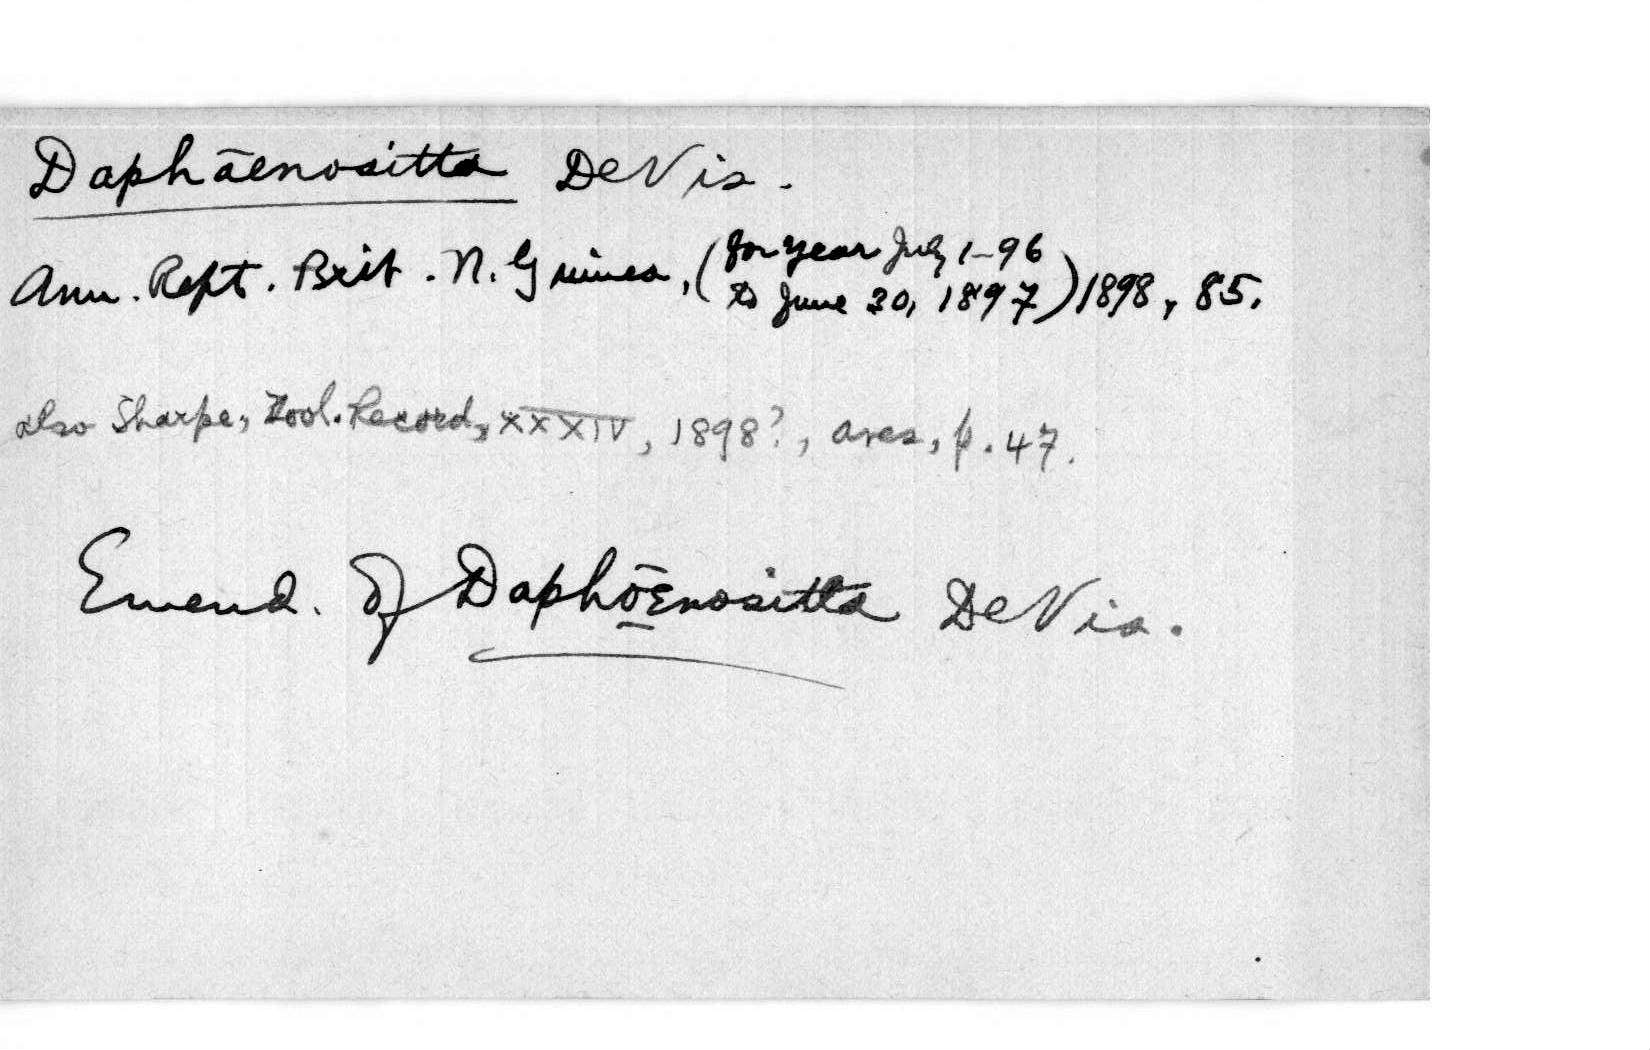 Daphāenositta De Vis.
Ann. Rept. Brit. N. Guinea, (for year July 1-96
to June 30, 1897) 1898, 85.
also Sharpe, Zool. Record, XXXIV, 1898?, Aves, p. 47.
Emend. of Daphōenositta De Vis.